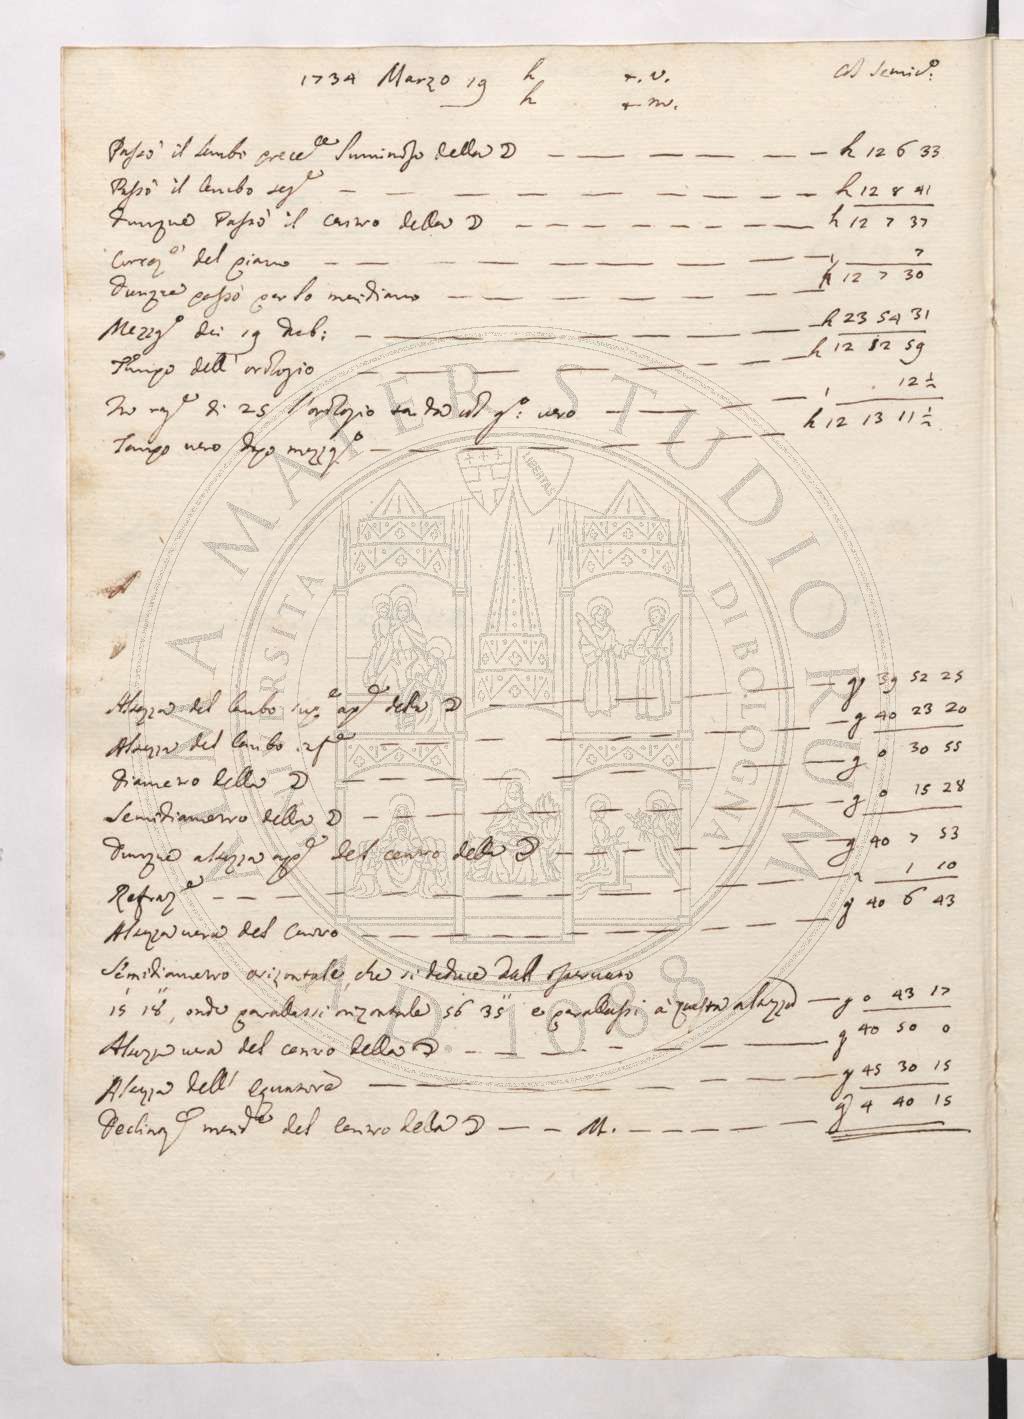 1734 Marzo 19 h t. v. Col Semic.º
h t. m.
Passò il lembo prece.te luminoso della ☽ h 12 6 33
Passò il lembo seg.e h 12 8 41
Dunque Passò il centro della ☽ h 12 7 37
Correz.e del piano 7
Dunque passò per lo meridiano h 12 7 30
Mezzg.º dei 19 h 23 54 31
Tempo dell' orologio h 12 12 59
In rag.e di 25 l'orologio 12 ½
Tempo vero dopo mezzg.º h 12 13 11 ½
ALMA MATER STUDIORUM
UNIVERSITA DI BOLOGNA
LIBERTAS
A.D. 1088
Altezza del lembo sup.e app.e della ☽ g 39 52 25
Altezza del lembo inf.e g 40 23 20
Diametro della ☽ g 0 30 55
Semidiametro della ☽ g 0 15 28
Dunque altezza app.e del centro della ☽ g 40 7 53
Refraz.e 1 10
Altezza vera del Centro g 40 6 43
Semidiametro orizontale, che si deduce dall' osservato
15' 18'', onde parallassi orizontale 56' 35'' e parallassi à questa altezza g 0 43 17
Altezza vera del centro della ☽ g 40 50 0
Altezza dell' Equatore g 45 30 15
Declinaz.e merid.le del Centro della ☽ M. g 4 40 15